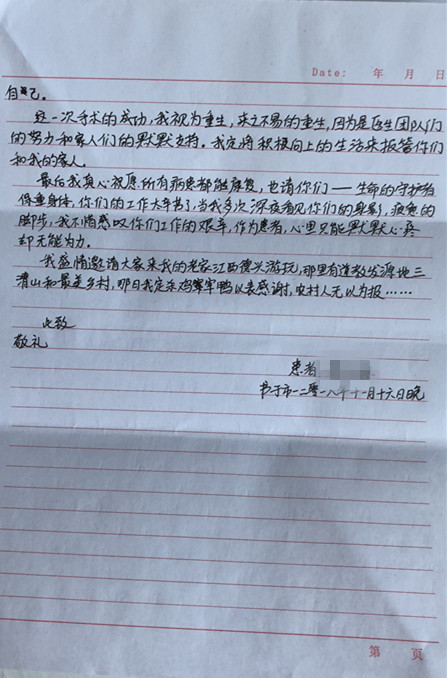 Date: 年 月 日
自己。
这一次手术的成功,我视为重生,来之不易的重生,因为是医生团队们
的努力和家人们的默默支持。我定将积极向上的生活来报答你们
和我的家人。
最后我真心祝愿所有病患都能康复,也请你们——生命的守护者
保重身体,你们的工作太辛苦了,当我多次深夜看见你们的身影,疲惫的
脚步,我不惰感叹你们工作的艰辛,作为患者,心里只能默默心疼
却无能为力。
我盛情邀请大家来我的老家江西德兴游玩,那里有道教发源地三
清山和最美乡村,哪日我定杀鸡宰鸭以表感谢,农村人无以为报……
此致
敬礼
患者
书于市一二零一八年十一月十六日晚
第 页